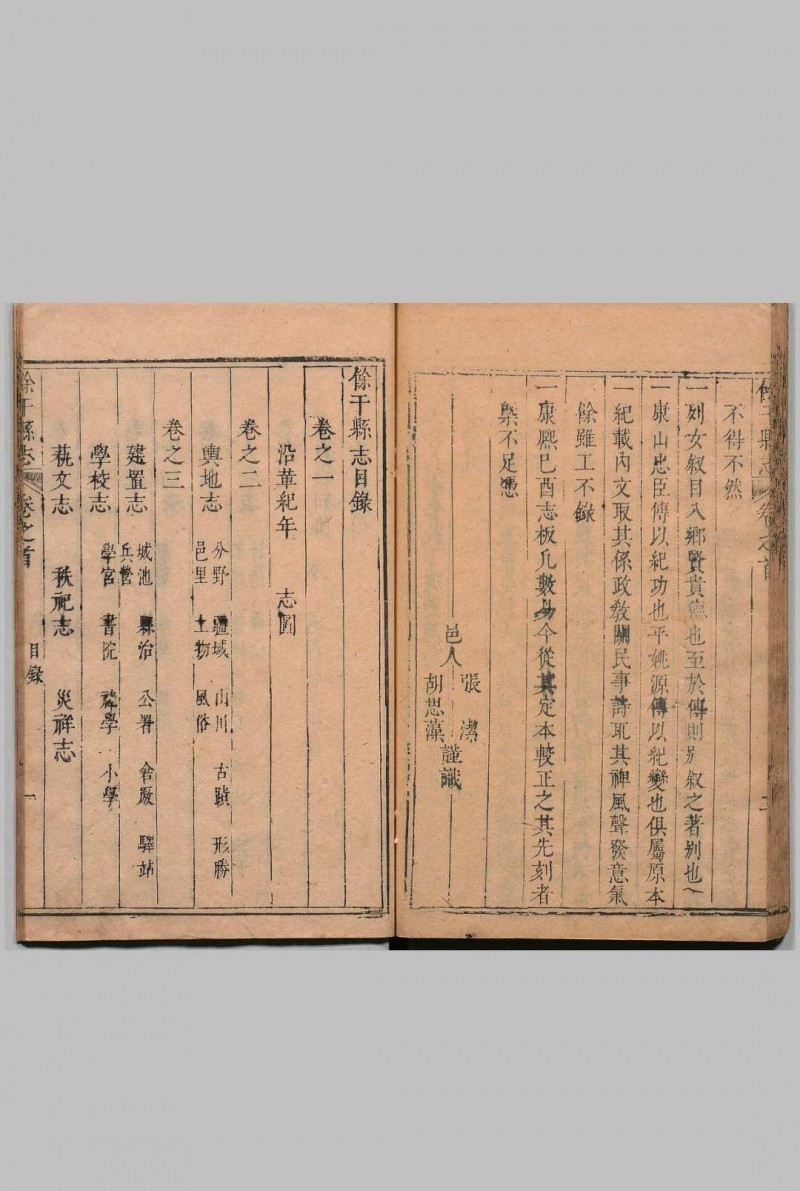 餘干縣志 卷之首 二
不得不然
一列女叙目入鄉賢貴德也至於傳則别叙之著别也
一康山忠臣傳以紀功也平姚源傳以紀變也俱屬原本
一紀載内文取其係政教關民事詩取其裨風聲發意氣
餘雖工不錄
一康熙己酉志板凡數易今從其定本較正之其先刻者
槩不足憑
邑人 張潔
胡思藻 謹識
餘干縣志目錄
卷之一
沿革紀年 志圖
卷之二
輿地志 分野 疆域 山川 古蹟 形勝
邑里 土物 風俗
卷之三
建置志 城池 縣治 公署 倉厫 驛站
兵營
學校志 學宮 書院 社學 小學
藝文志 秩祀志 災祥志
餘干縣志 卷之首 目錄 一